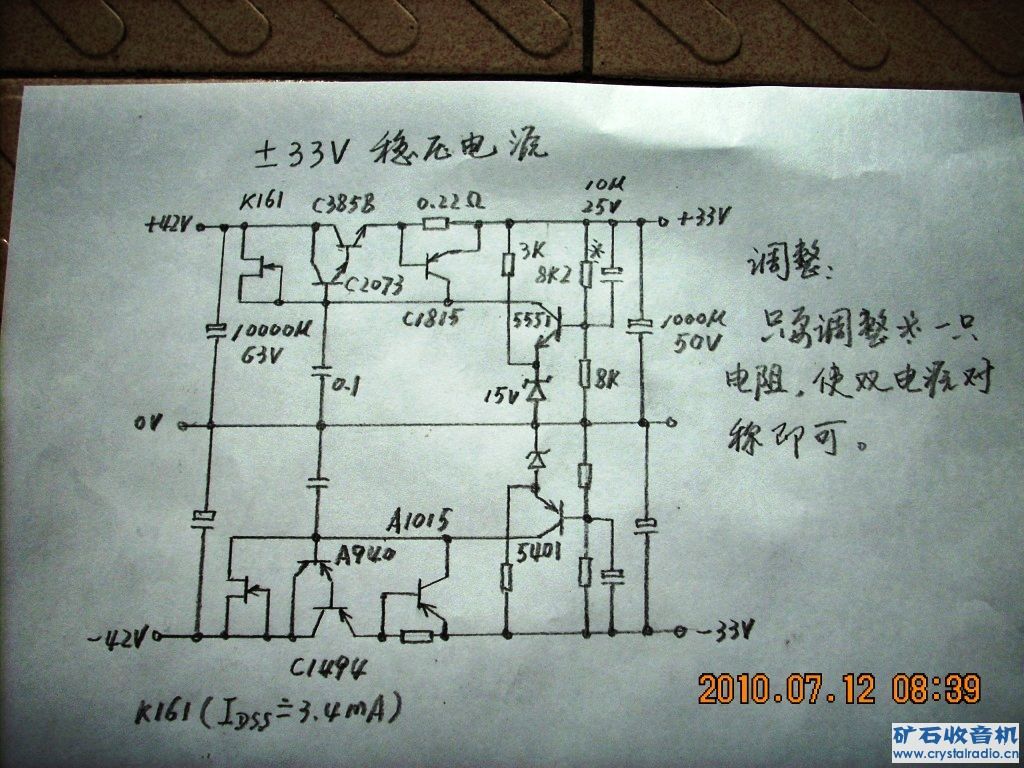 ±33V 稳压电源
K161 C385B 0.22Ω 10μ
25V
+42V
+33V
3K
8K2
※
C2073
C1815
5551
10000μ
63V
1000μ
50V
0.1
15V
8K
0V
调整:
只要调整※一只
电阻,使双电源对
称即可。
A1015
A940
5401
-42V
-33V
C1494
K161(IDSS≐3.4mA)
2010.07.12 08:39
矿石收音机
www.crystalradio.cn